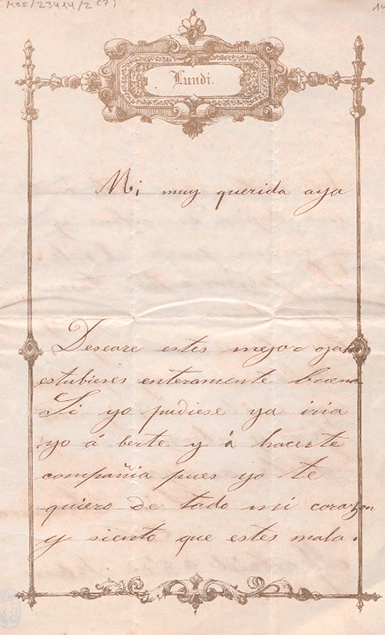 Mss/23414/2 (7)
Lundi.
Mi muy querida aya
Deseare estes mejor ojala
estubieses enteramente buena
Si yo pudiese ya iria
yo á berte y á hacerte
compañia pues yo te
quiero de todo mi corazon
y siento que estes mala.